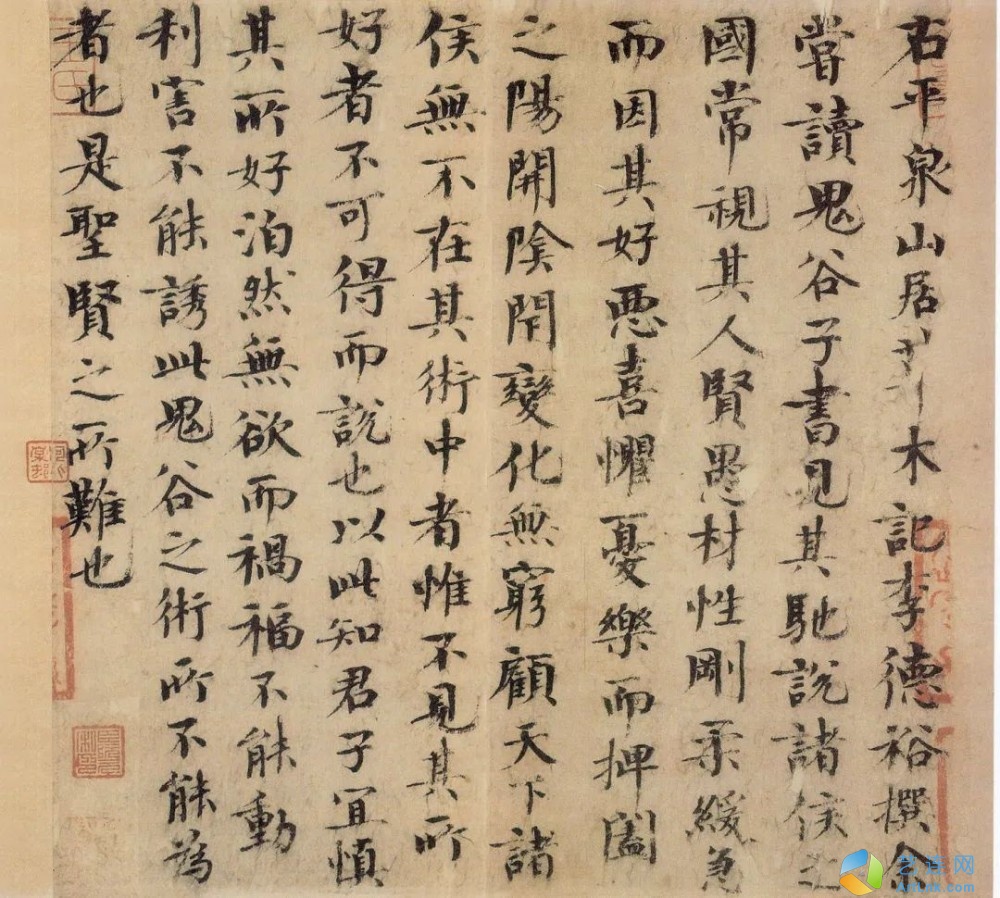 右平泉山居草木記李德裕撰余
嘗讀鬼谷子書見其馳說諸侯之
國常視其人賢愚材性剛柔緩急
而因其好惡喜懼憂樂而捭闔
之陽開陰閇變化無窮顧天下諸
侯無不在其術中者惟不見其所
好者不可得而說也以此知君子宜慎
其所好泊然無欲而禍福不能動
利害不能誘此鬼谷之術所不能為
者也是聖賢之所難也
艺连网